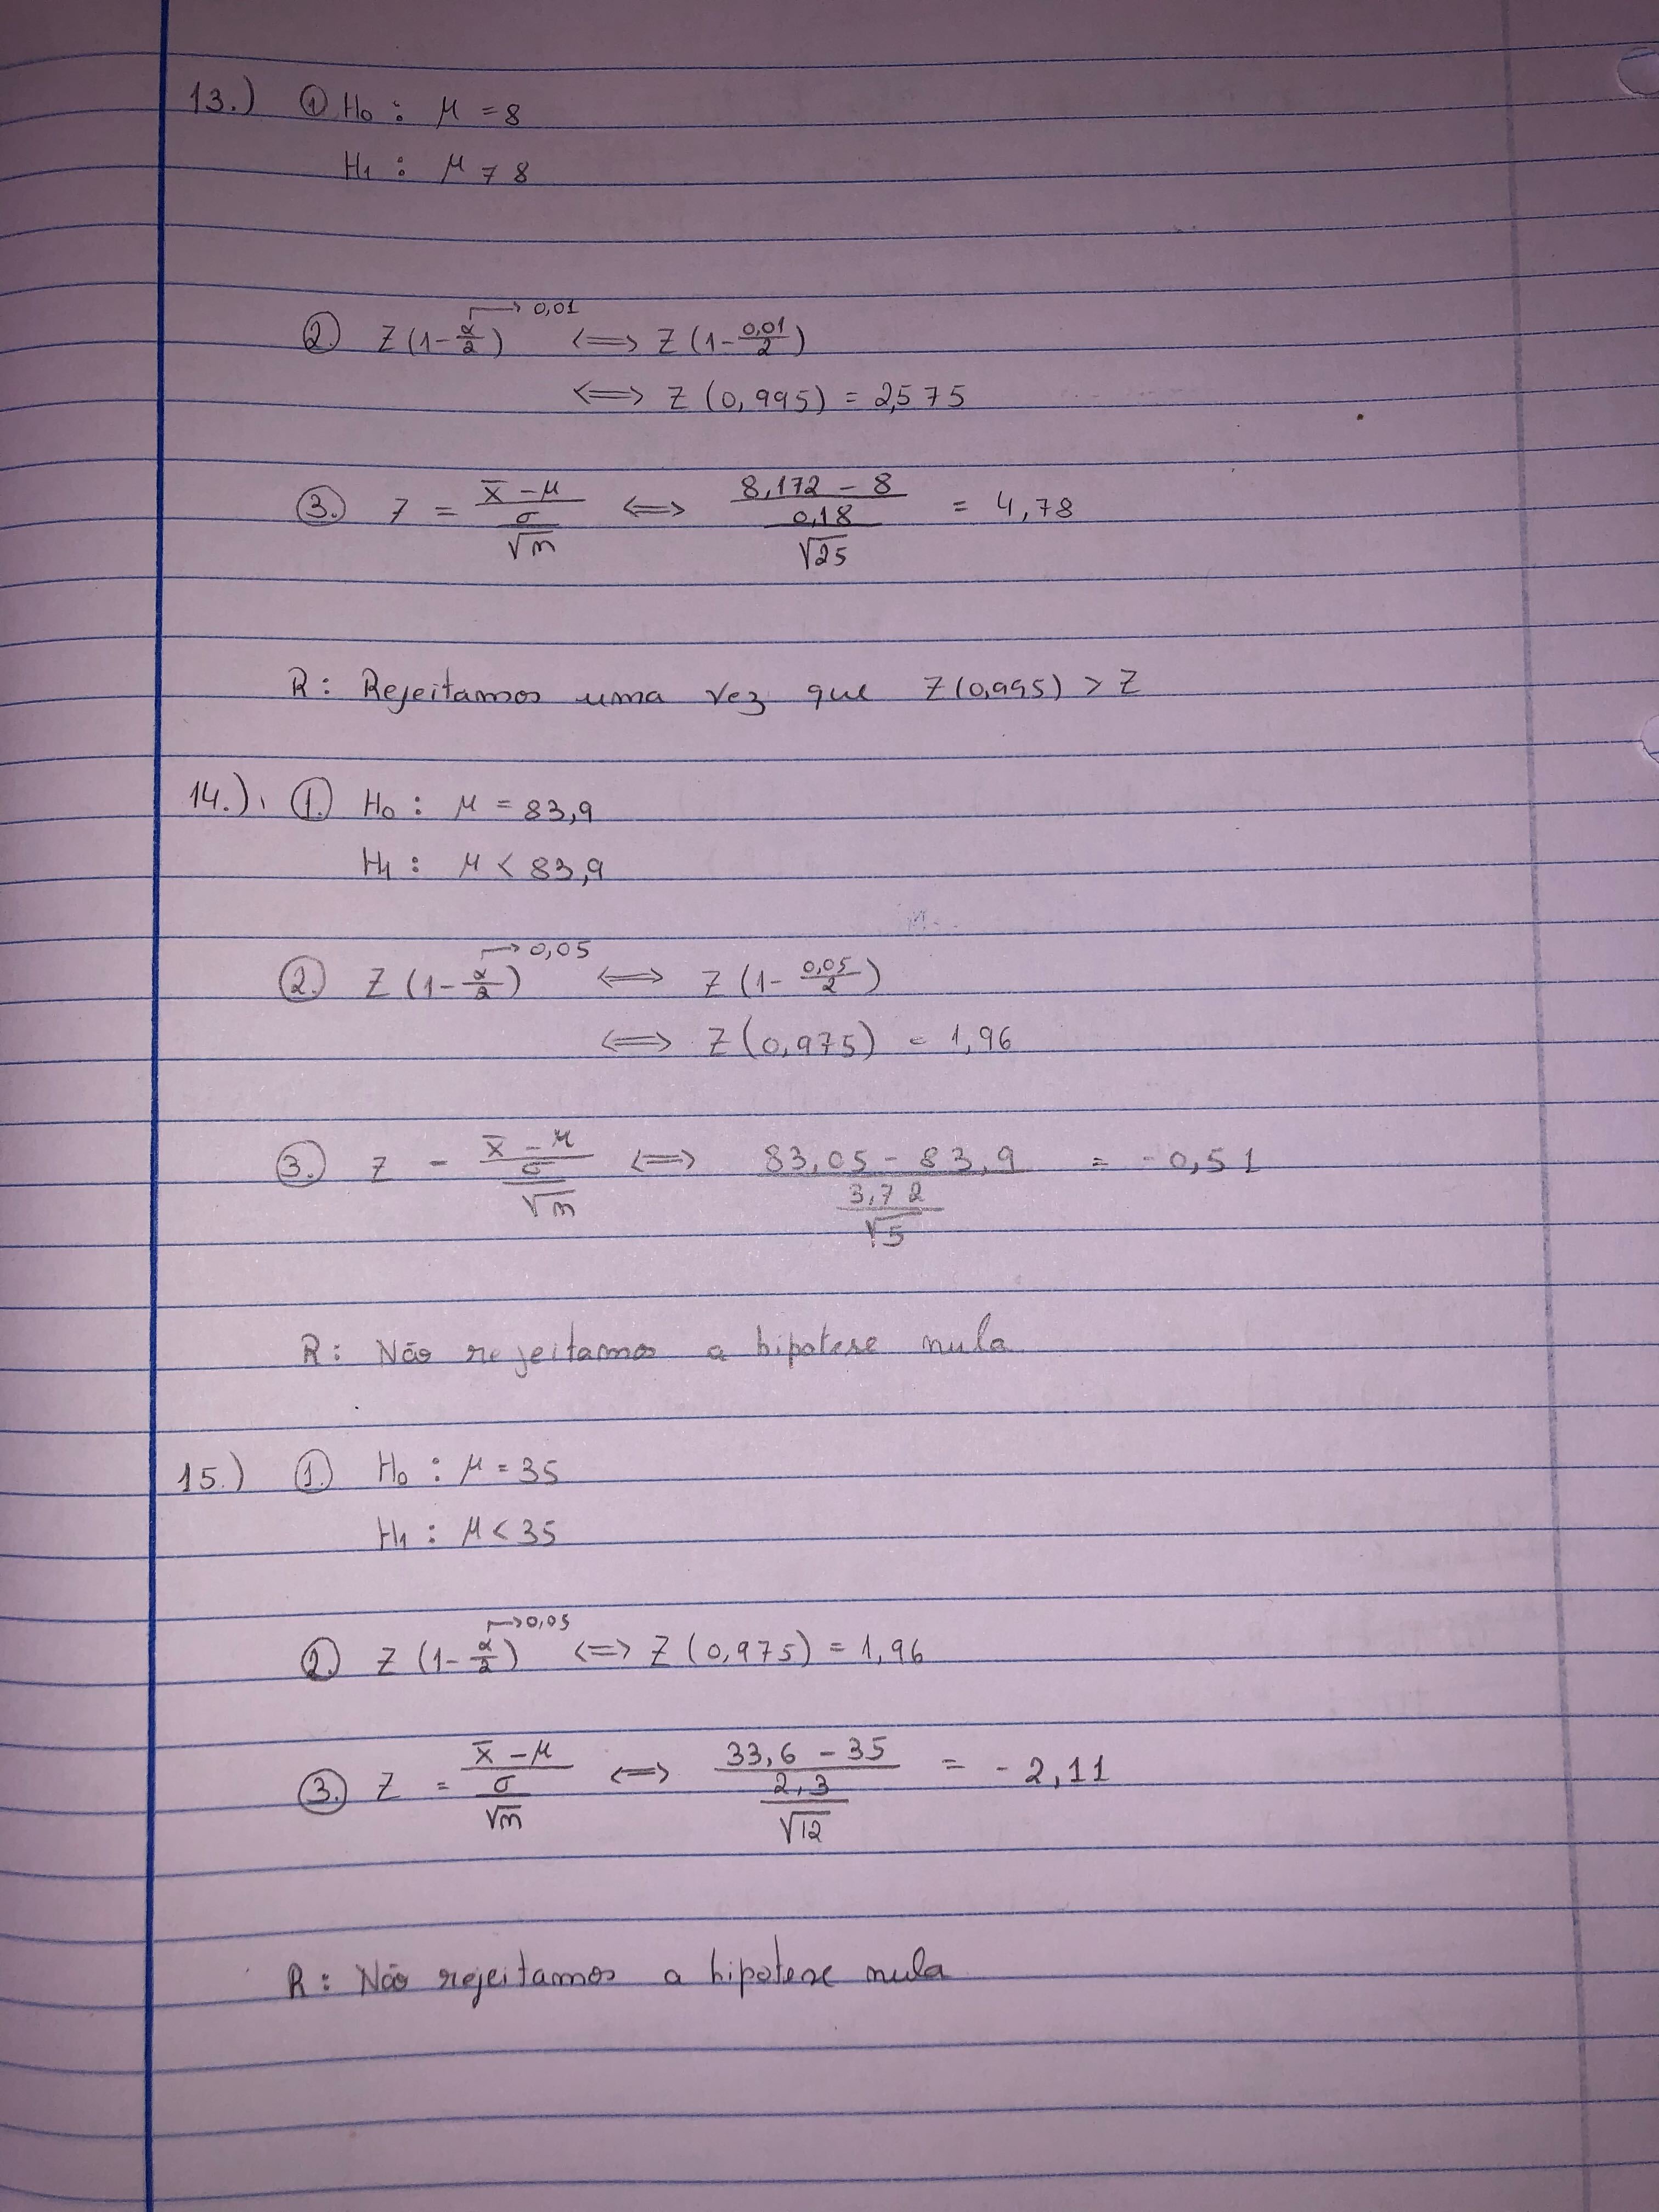 13.) ① H₀ : μ = 8
H₁ : μ ≠ 8
→ 0,01
② Z (1 - α/2) <=> Z (1 - 0,01/2)
<=> Z (0,995) = 2,575
③ Z = (x̄ - μ)/(σ/√n) <=> (8,172 - 8)/(0,18/√25) = 4,78
R: Rejeitamos uma vez que Z (0,995) > Z
14.) ① H₀ : μ = 83,9
H₁ : μ < 83,9
→ 0,05
② Z (1 - α/2) <=> Z (1 - 0,05/2)
<=> Z (0,975) = 1,96
③ Z = (x̄ - μ)/(σ/√n) <=> (83,05 - 83,9)/(3,72/√5) = -0,51
R: Não rejeitamos a hipotese nula
15.) ① H₀ : μ = 35
H₁ : μ < 35
→ 0,05
② Z (1 - α/2) <=> Z (0,975) = 1,96
③ Z = (x̄ - μ)/(σ/√n) <=> (33,6 - 35)/(2,3/√12) = -2,11
R: Não rejeitamos a hipotese nula